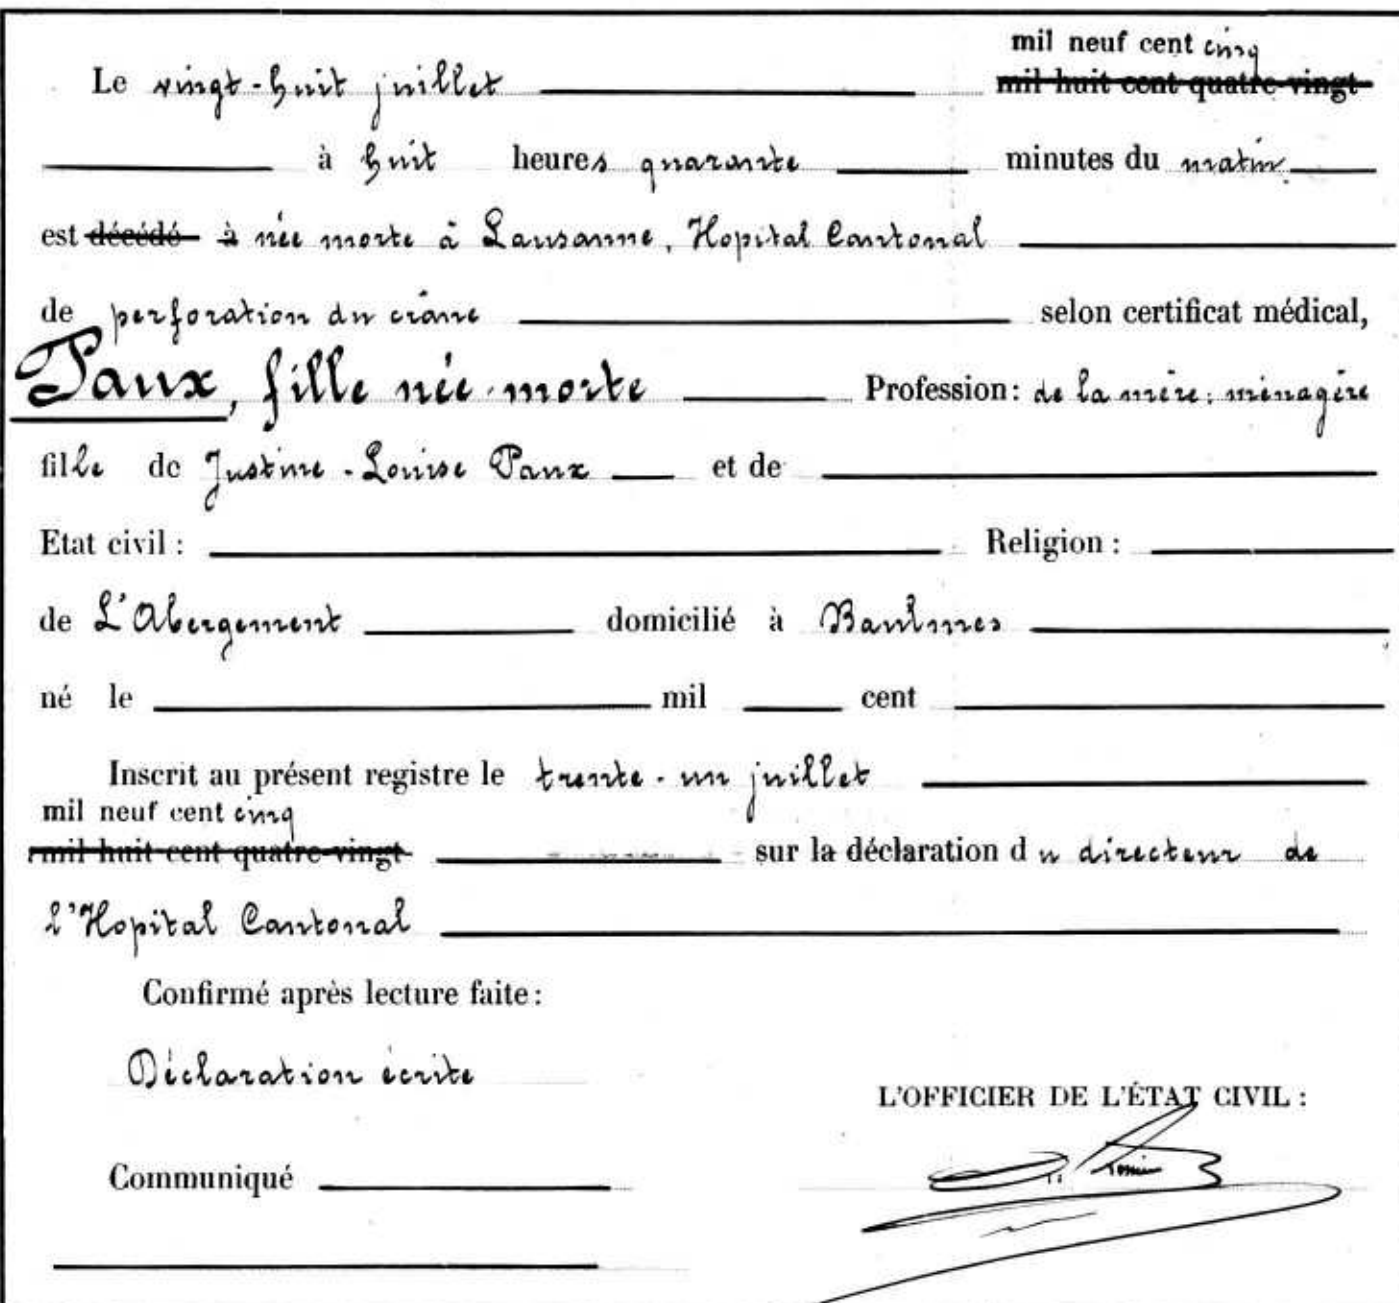 mil neuf cent cinq
Le vingt-huit juillet mil huit cent quatre-vingt
à huit heures quarante minutes du matin
est décédé à née morte à Lausanne, Hopital Cantonal
de perforation du crâne selon certificat médical,
Paux, fille née-morte Profession: de la mère: ménagère
fille de Justine-Louise Paux et de
Etat civil : Religion :
de L'Abergement domicilié à Baulmes
né le mil cent
Inscrit au présent registre le trente-un juillet
mil neuf cent cinq
mil huit cent quatre-vingt sur la déclaration du directeur de
l'Hopital Cantonal
Confirmé après lecture faite :
Déclaration écrite
L'OFFICIER DE L'ÉTAT CIVIL :
Communiqué